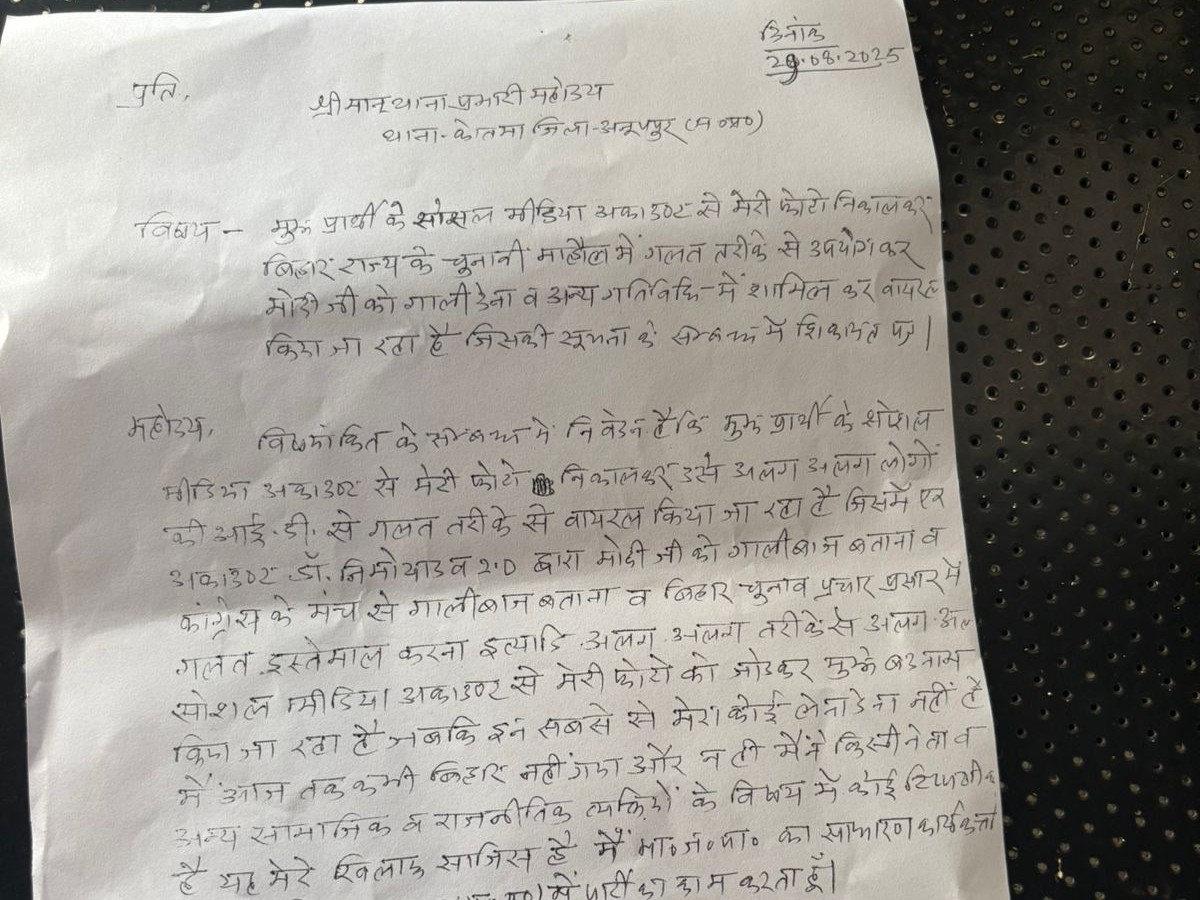 दिनांक
29.08.2025
प्रति,
श्रीमान थाना प्रभारी महोदय
थाना-कोतमा जिला-अनूपपुर (म०प्र०)
विषय - मुझ प्रार्थी के सोसल मीडिया अकाउण्ट से मेरी फोटो निकालकर
बिहार राज्य के चुनावी माहौल में गलत तरीके से उपयोग कर
मोदी जी को गाली देना व अन्य गतिविधि में शामिल कर वायरल
किया जा रहा है जिसकी सूचना के सम्बन्ध में शिकायत पत्र।
महोदय,
विषयांकित के सम्बन्ध में निवेदन है कि मुझ प्रार्थी के सोशल
मीडिया अकाउण्ट से मेरी फोटो निकालकर उसे अलग अलग लोगों
की आई.डी. से गलत तरीके से वायरल किया जा रहा है जिसमें एक
अकाउण्ट डॉ. निमो यादव 2.0 द्वारा मोदी जी को गालीबाज बताना व
कांग्रेस के मंच से गालीबाज बताना व बिहार चुनाव प्रचार प्रसार में
गलत इस्तेमाल करना इत्यादि अलग अलग तरीके से अलग
सोशल मीडिया अकाउण्ट से मेरी फोटो को जोडकर मुझे बदनाम
किया जा रहा है जबकि इन सबसे से मेरा कोई लेनादेना नहीं है
मैं आज तक कभी बिहार नहीं गया और न ही मैंने किसी नेता व
अन्य सामाजिक व राजनीतिक व्यक्तियों के विषय में कोई टिप्पणी
है यह मेरे खिलाफ साजिस है मैं भा०ज०पा० का साधारण कार्यकर्ता
में पार्टी का काम करता हूँ।